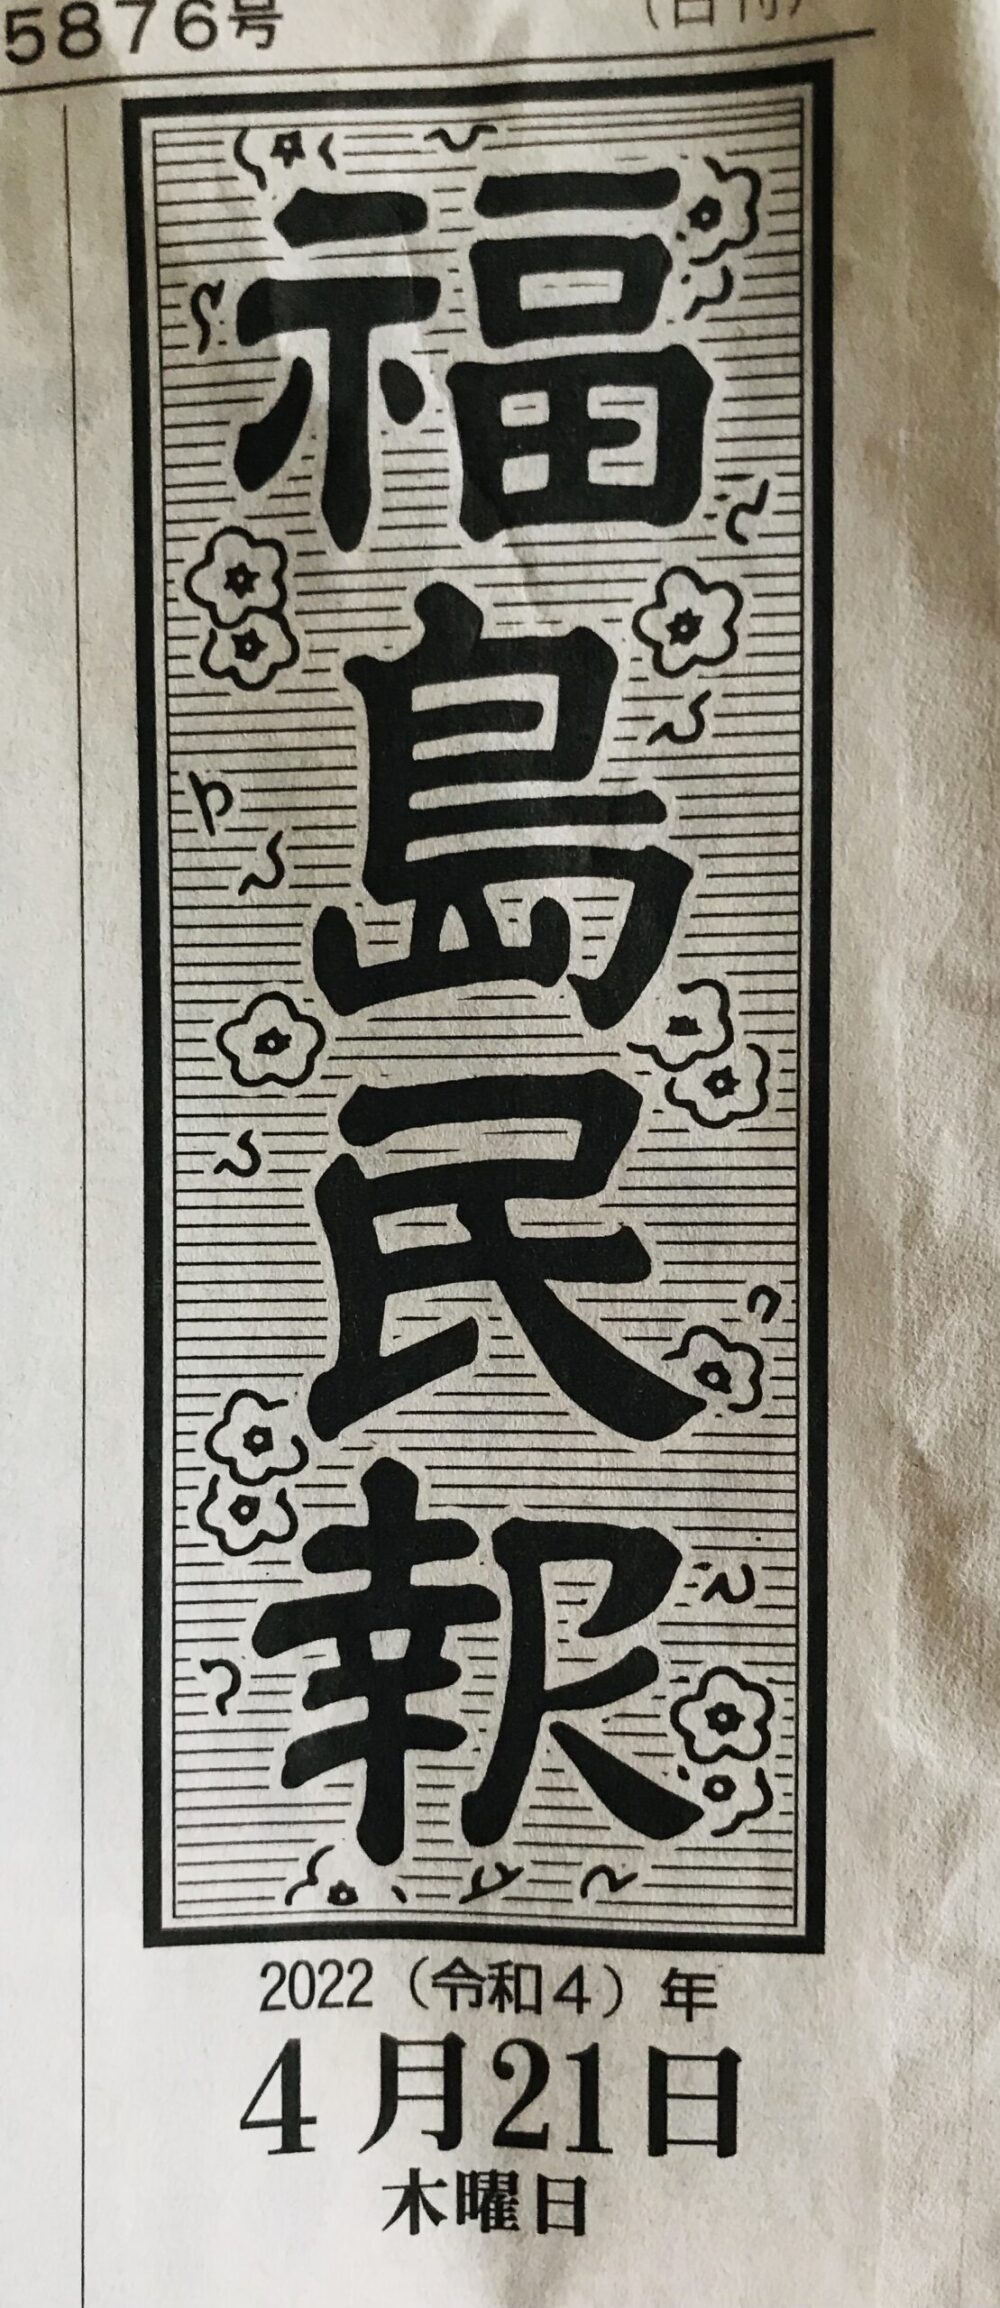 5876号
（日刊）
福島民報
2022（令和4）年
4月21日
木曜日